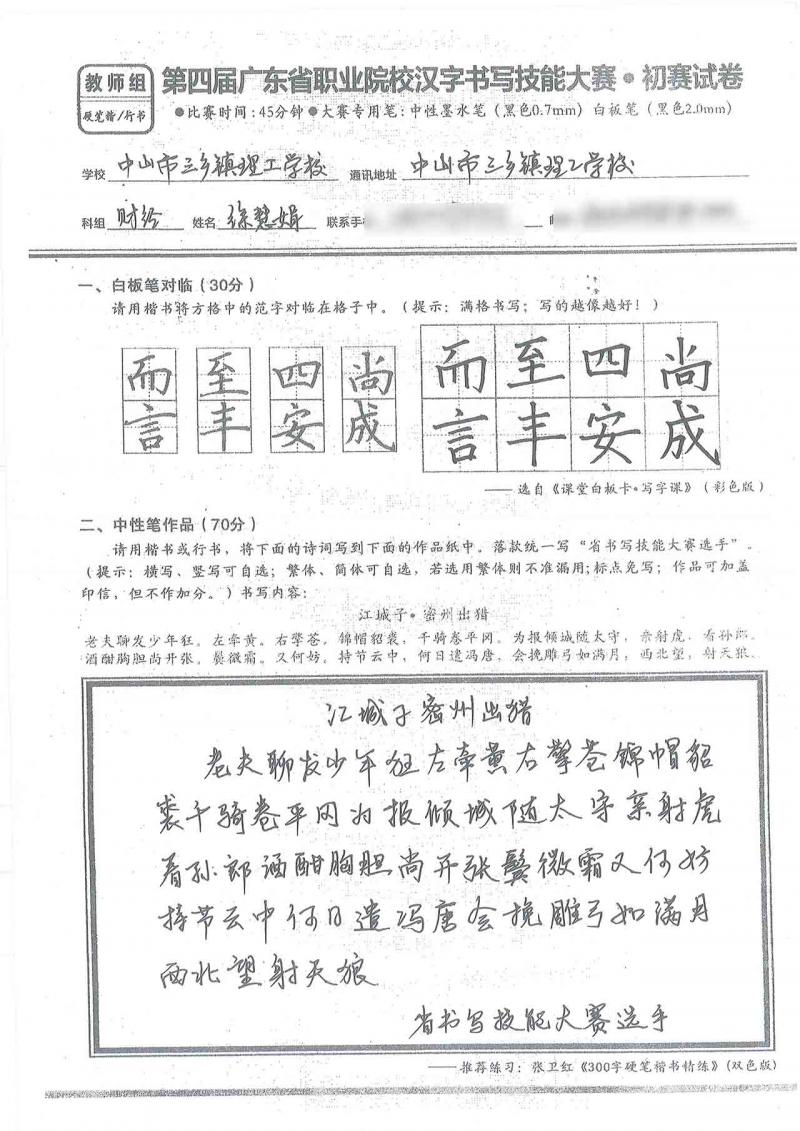 教师组
硬笔楷/行书
第四届广东省职业院校汉字书写技能大赛•初赛试卷
●比赛时间:45分钟●大赛专用笔:中性墨水笔(黑色0.7mm)白板笔(黑色2.0mm)
学校 中山市三乡镇理工学校 通讯地址 中山市三乡镇理工学校
科组 财经 姓名 徐慧娟 联系手
一、白板笔对临(30分)
请用楷书将方格中的范字对临在格子中。(提示:满格书写;写的越像越好!)
而 至 四 尚 而 至 四 尚
言 丰 安 成 言 丰 安 成
——选自《课堂白板卡•写字课》(彩色版)
二、中性笔作品(70分)
请用楷书或行书,将下面的诗词写到下面的作品纸中。落款统一写“省书写技能大赛选手”。
(提示:横写、竖写可自选;繁体、简体可自选,若选用繁体则不准漏用;标点免写;作品可加盖
印信,但不作加分。)书写内容:
江城子•密州出猎
老夫聊发少年狂。左牵黄。右擎苍。锦帽貂裘,千骑卷平冈。为报倾城随太守,亲射虎,看孙郎。
酒酣胸胆尚开张。鬓微霜。又何妨。持节云中,何日遣冯唐,会挽雕弓如满月,西北望,射天狼。
江城子密州出猎
老夫聊发少年狂左牵黄右擎苍锦帽貂
裘千骑卷平冈为报倾城随太守亲射虎
看孙郎酒酣胸胆尚开张鬓微霜又何妨
持节云中何日遣冯唐会挽雕弓如满月
西北望射天狼
省书写技能大赛选手
——推荐练习:张卫红《300字硬笔楷书情练》(双色版)